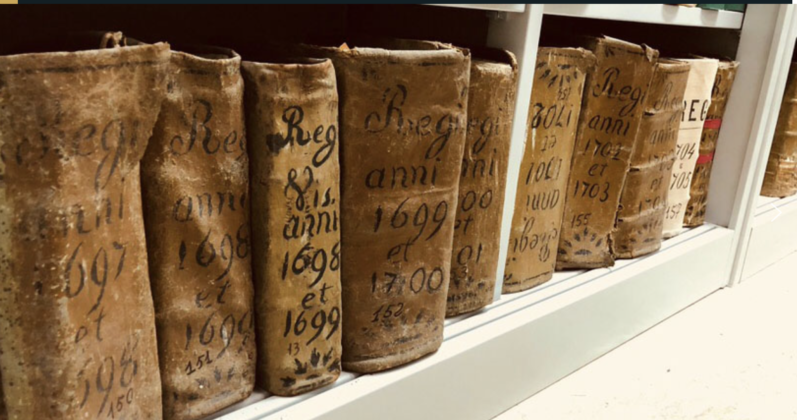 Regi
anni
1697
et
1698
150
Reg
anni
1698
et
169
151
Reg
Vis.
anni
1698
et
1699
13
Reg
anni
1699
et
1700
152
egi
ni
00
et
01
Regi
anni
1702
et
1703
155
REG
704
705
157